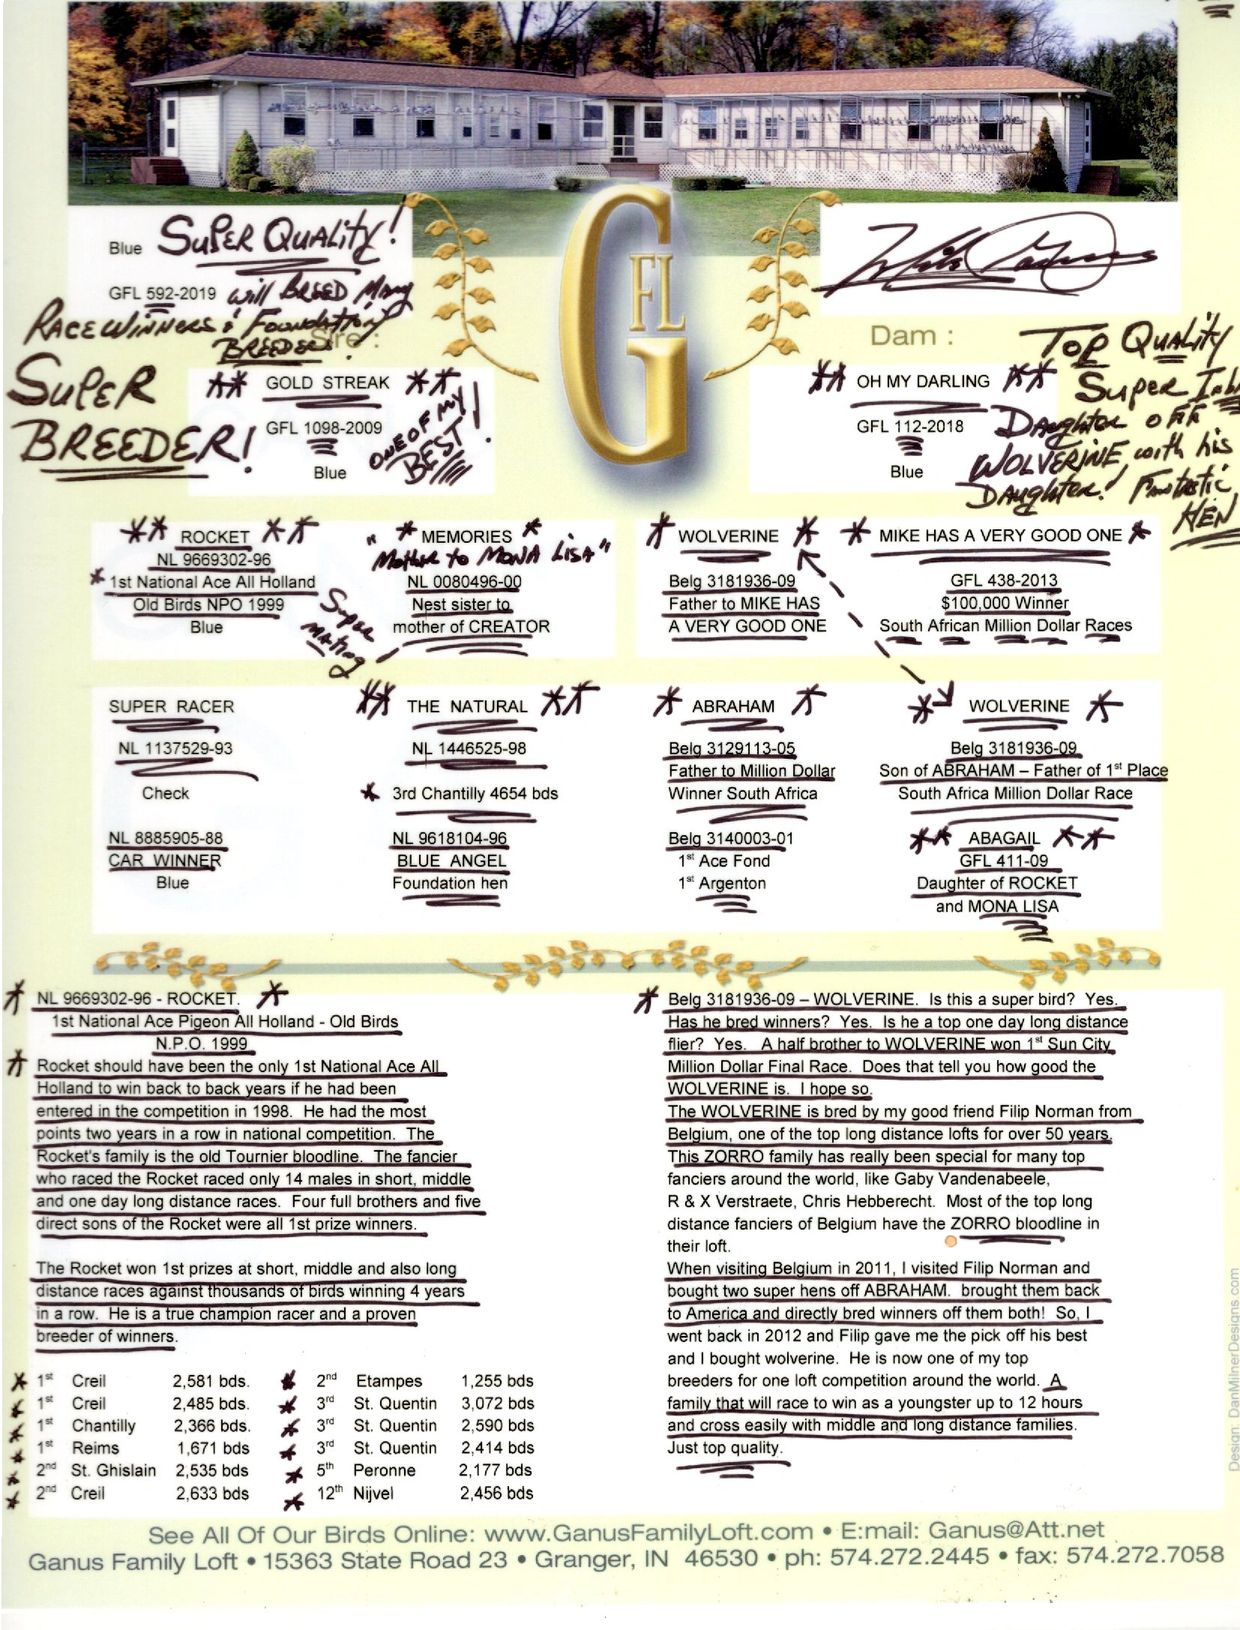 Blue SUPER QUALITY!
GFL 592-2019 will BREED MANY
RACE WINNERS & FOUNDATION
BREEDERS!
Sire :
SUPER
BREEDER!
** GOLD STREAK **
GFL 1098-2009
Blue
ONE OF MY
BEST!
G
FL
G
Dam :
TOP QUALITY
** OH MY DARLING **
GFL 112-2018
Blue
Super
Daughter OFF
WOLVERINE with his
Daughter! Fantastic
HEN
** ROCKET **
NL 9669302-96
* 1st National Ace All Holland
Old Birds NPO 1999
Blue
Super
Mating
* MEMORIES *
"Mother to MONA LISA"
NL 0080496-00
Nest sister to
mother of CREATOR
* WOLVERINE *
Belg 3181936-09
Father to MIKE HAS
A VERY GOOD ONE
* MIKE HAS A VERY GOOD ONE *
GFL 438-2013
$100,000 Winner
South African Million Dollar Races
SUPER RACER
NL 1137529-93
Check
NL 8885905-88
CAR WINNER
Blue
** THE NATURAL **
NL 1446525-98
* 3rd Chantilly 4654 bds
NL 9618104-96
BLUE ANGEL
Foundation hen
* ABRAHAM *
Belg 3129113-05
Father to Million Dollar
Winner South Africa
Belg 3140003-01
1st Ace Fond
1st Argenton
* WOLVERINE *
Belg 3181936-09
Son of ABRAHAM – Father of 1st Place
South Africa Million Dollar Race
** ABAGAIL **
GFL 411-09
Daughter of ROCKET
and MONA LISA
* NL 9669302-96 - ROCKET. *
1st National Ace Pigeon All Holland - Old Birds
N.P.O. 1999
* Rocket should have been the only 1st National Ace All
Holland to win back to back years if he had been
entered in the competition in 1998. He had the most
points two years in a row in national competition. The
Rocket's family is the old Tournier bloodline. The fancier
who raced the Rocket raced only 14 males in short, middle
and one day long distance races. Four full brothers and five
direct sons of the Rocket were all 1st prize winners.
The Rocket won 1st prizes at short, middle and also long
distance races against thousands of birds winning 4 years
in a row. He is a true champion racer and a proven
breeder of winners.
* 1st Creil 2,581 bds. * 2nd Etampes 1,255 bds
* 1st Creil 2,485 bds. * 3rd St. Quentin 3,072 bds
* 1st Chantilly 2,366 bds. * 3rd St. Quentin 2,590 bds
* 1st Reims 1,671 bds * 3rd St. Quentin 2,414 bds
* 2nd St. Ghislain 2,535 bds * 5th Peronne 2,177 bds
* 2nd Creil 2,633 bds * 12th Nijvel 2,456 bds
* Belg 3181936-09 – WOLVERINE. Is this a super bird? Yes.
Has he bred winners? Yes. Is he a top one day long distance
flier? Yes. A half brother to WOLVERINE won 1st Sun City
Million Dollar Final Race. Does that tell you how good the
WOLVERINE is. I hope so.
The WOLVERINE is bred by my good friend Filip Norman from
Belgium, one of the top long distance lofts for over 50 years.
This ZORRO family has really been special for many top
fanciers around the world, like Gaby Vandenabeele,
R & X Verstraete, Chris Hebberecht. Most of the top long
distance fanciers of Belgium have the ZORRO bloodline in
their loft.
When visiting Belgium in 2011, I visited Filip Norman and
bought two super hens off ABRAHAM. brought them back
to America and directly bred winners off them both! So, I
went back in 2012 and Filip gave me the pick off his best
and I bought wolverine. He is now one of my top
breeders for one loft competition around the world. A
family that will race to win as a youngster up to 12 hours
and cross easily with middle and long distance families.
Just top quality.
Design: DanMilnerDesigns.com
See All Of Our Birds Online: www.GanusFamilyLoft.com • E:mail: Ganus@Att.net
Ganus Family Loft • 15363 State Road 23 • Granger, IN 46530 • ph: 574.272.2445 • fax: 574.272.7058